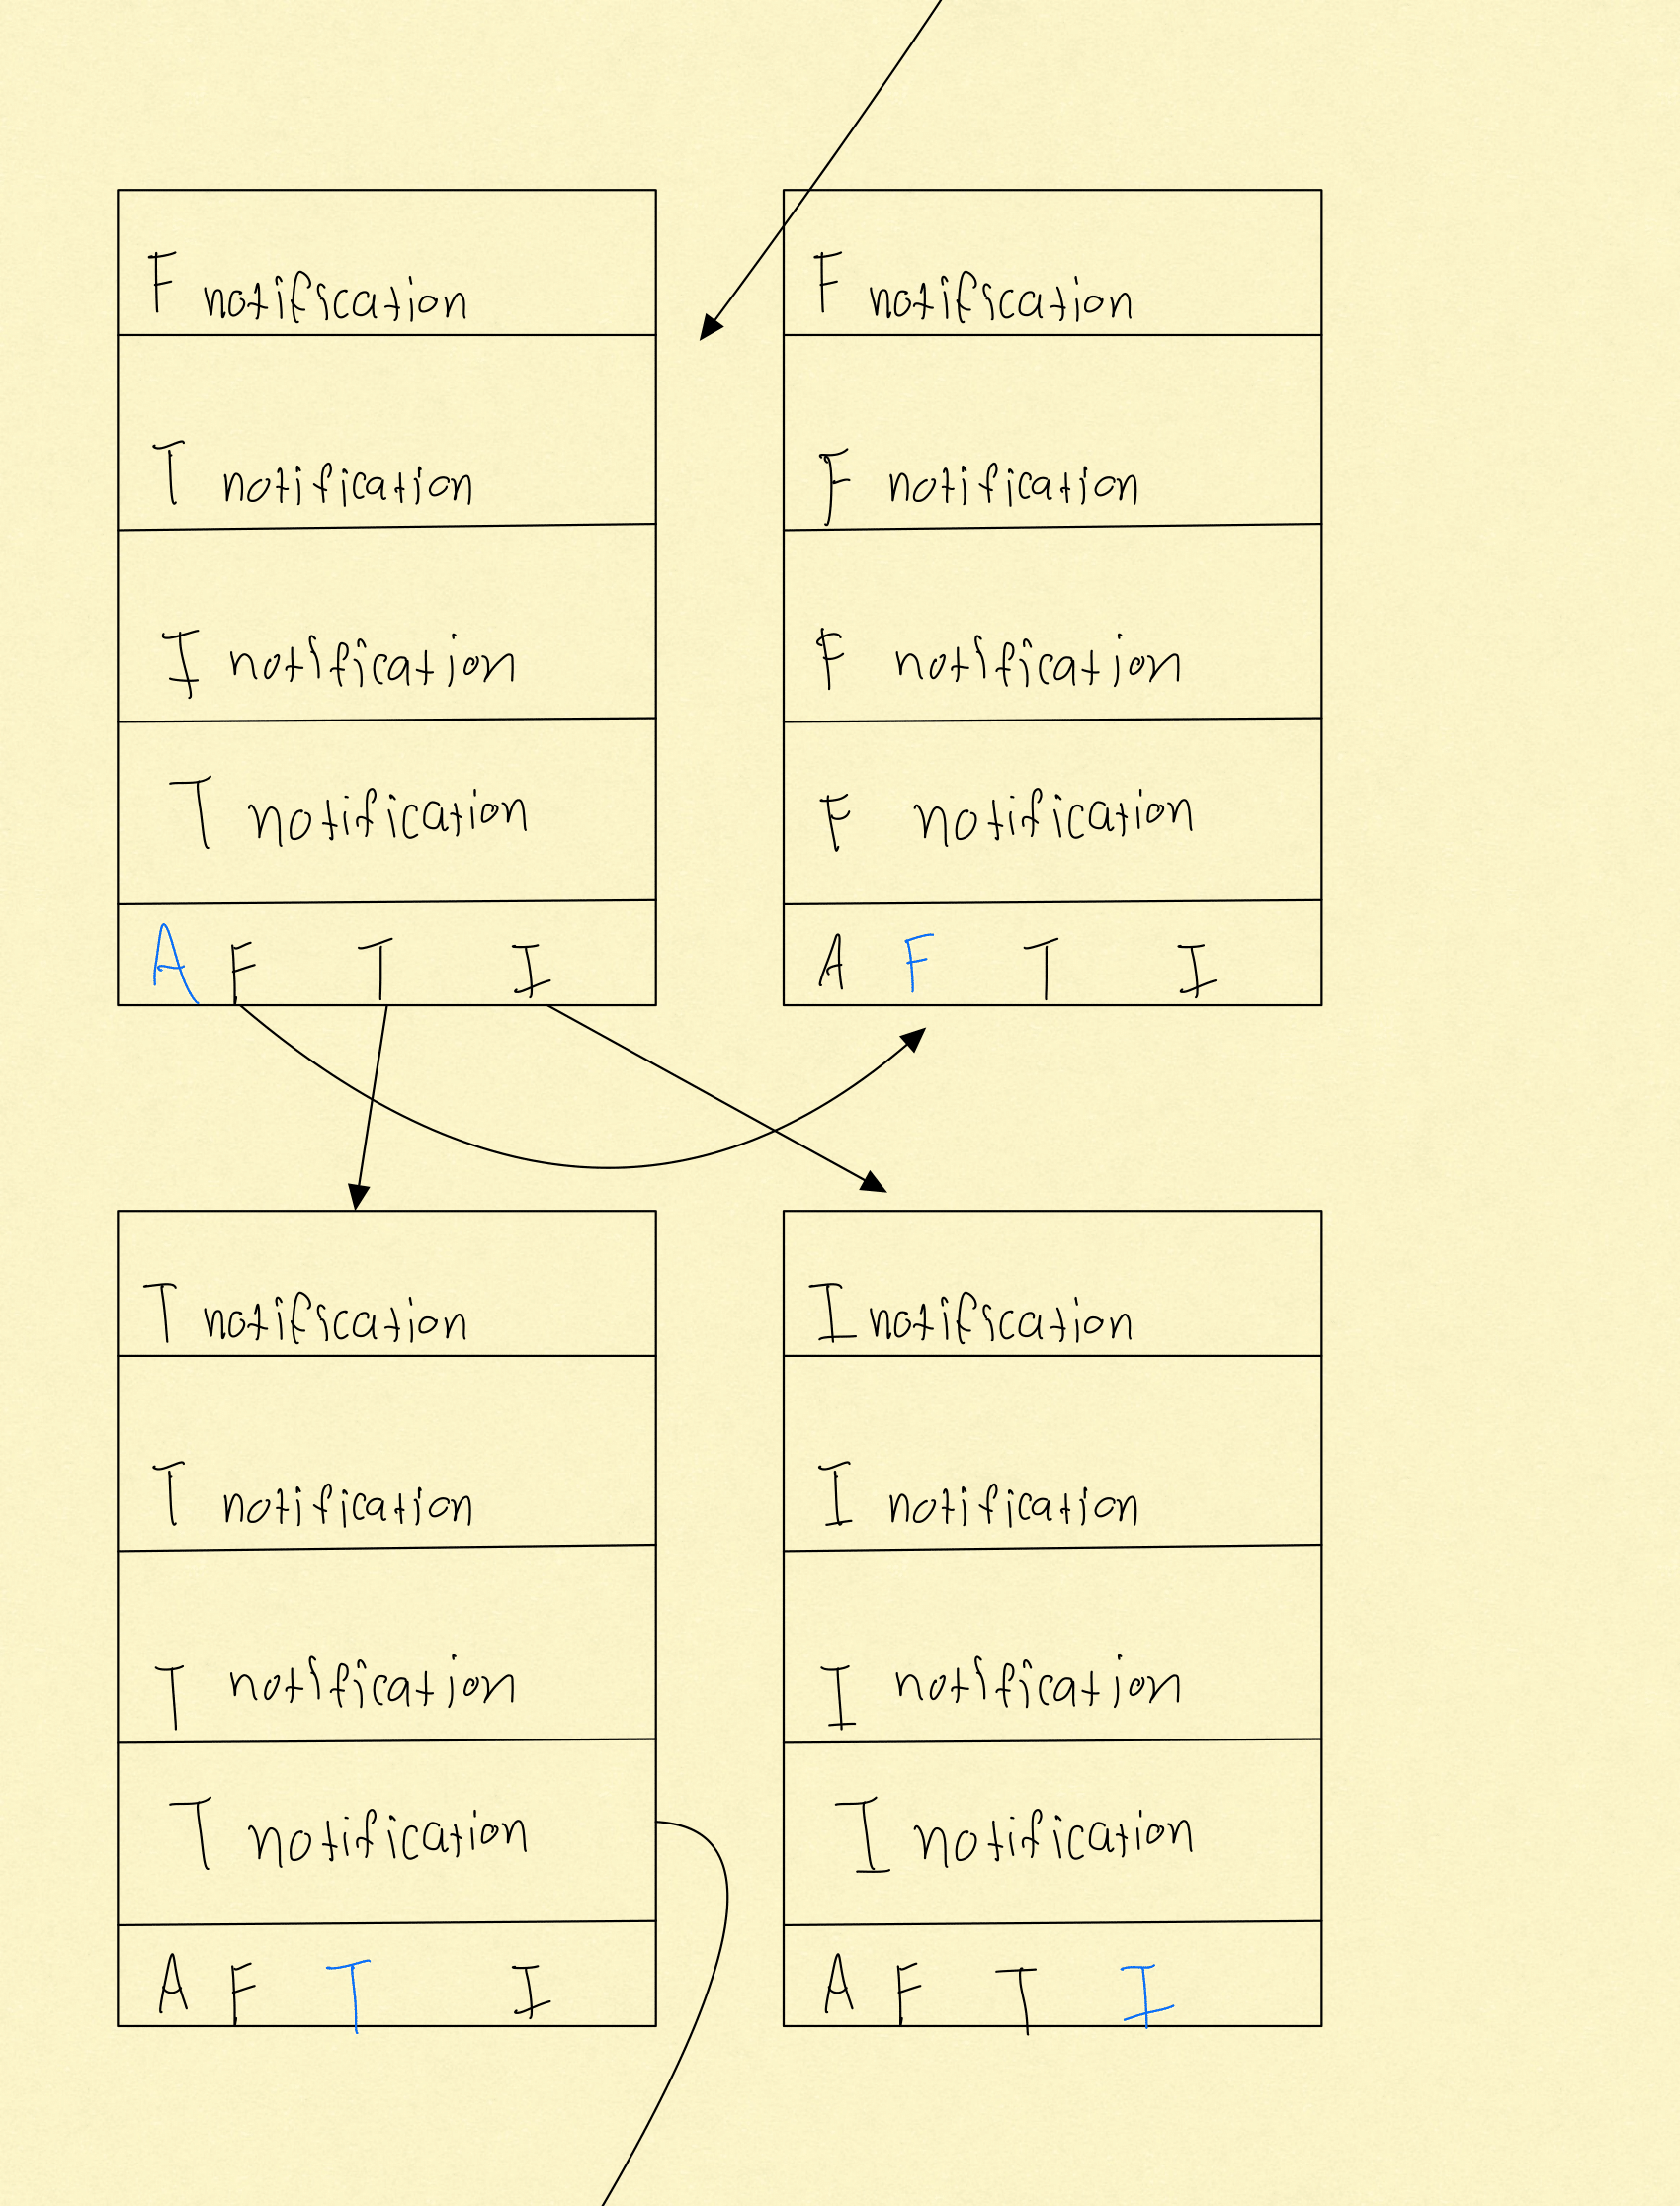 F notification
T notification
I notification
T notification
A F T I
F notification
F notification
F notification
F notification
A F T I
T notification
T notification
T notification
T notification
A F T I
I notification
I notification
I notification
I notification
A F T I